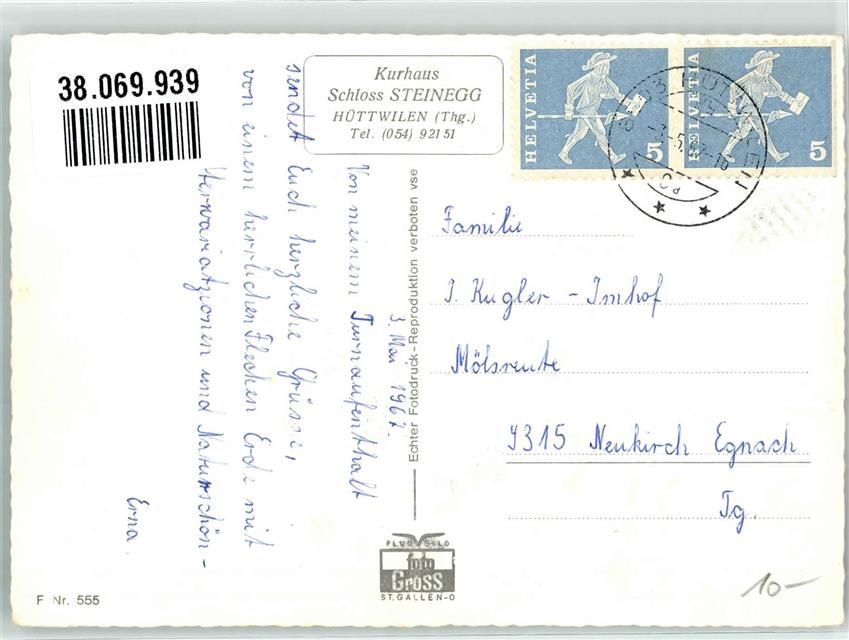 38.069.939
Kurhaus
Schloss STEINEGG
HÜTTWILEN (Thg.)
Tel. (054) 921 51
HELVETIA
5
HELVETIA
5
3. Mai 1967.
Von meinem Turnaufenthalt
sendet Euch herzliche Grüsse,
von einem herrlichen Flecken Erde mit
und Naturschön-
Erna.
Echter Fotodruck - Reproduktion verboten vse
Familie
J. Kugler - Imhof
Mölsreute
9315 Neukirch Egnach
Tg.
FLUGBILD
foto
Gross
ST. GALLEN-O
F Nr. 555
10-